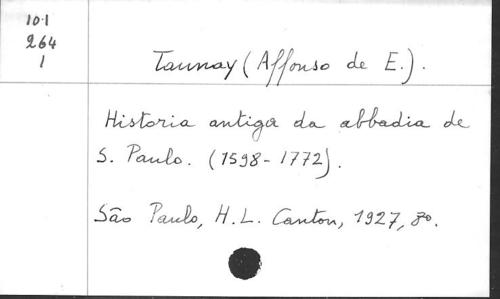 101
264
1
Taunay (Affonso de E.).
Historia antiga da abbadia de
S. Paulo. (1598-1772).
São Paulo, H.L. Canton, 1927, 8o.